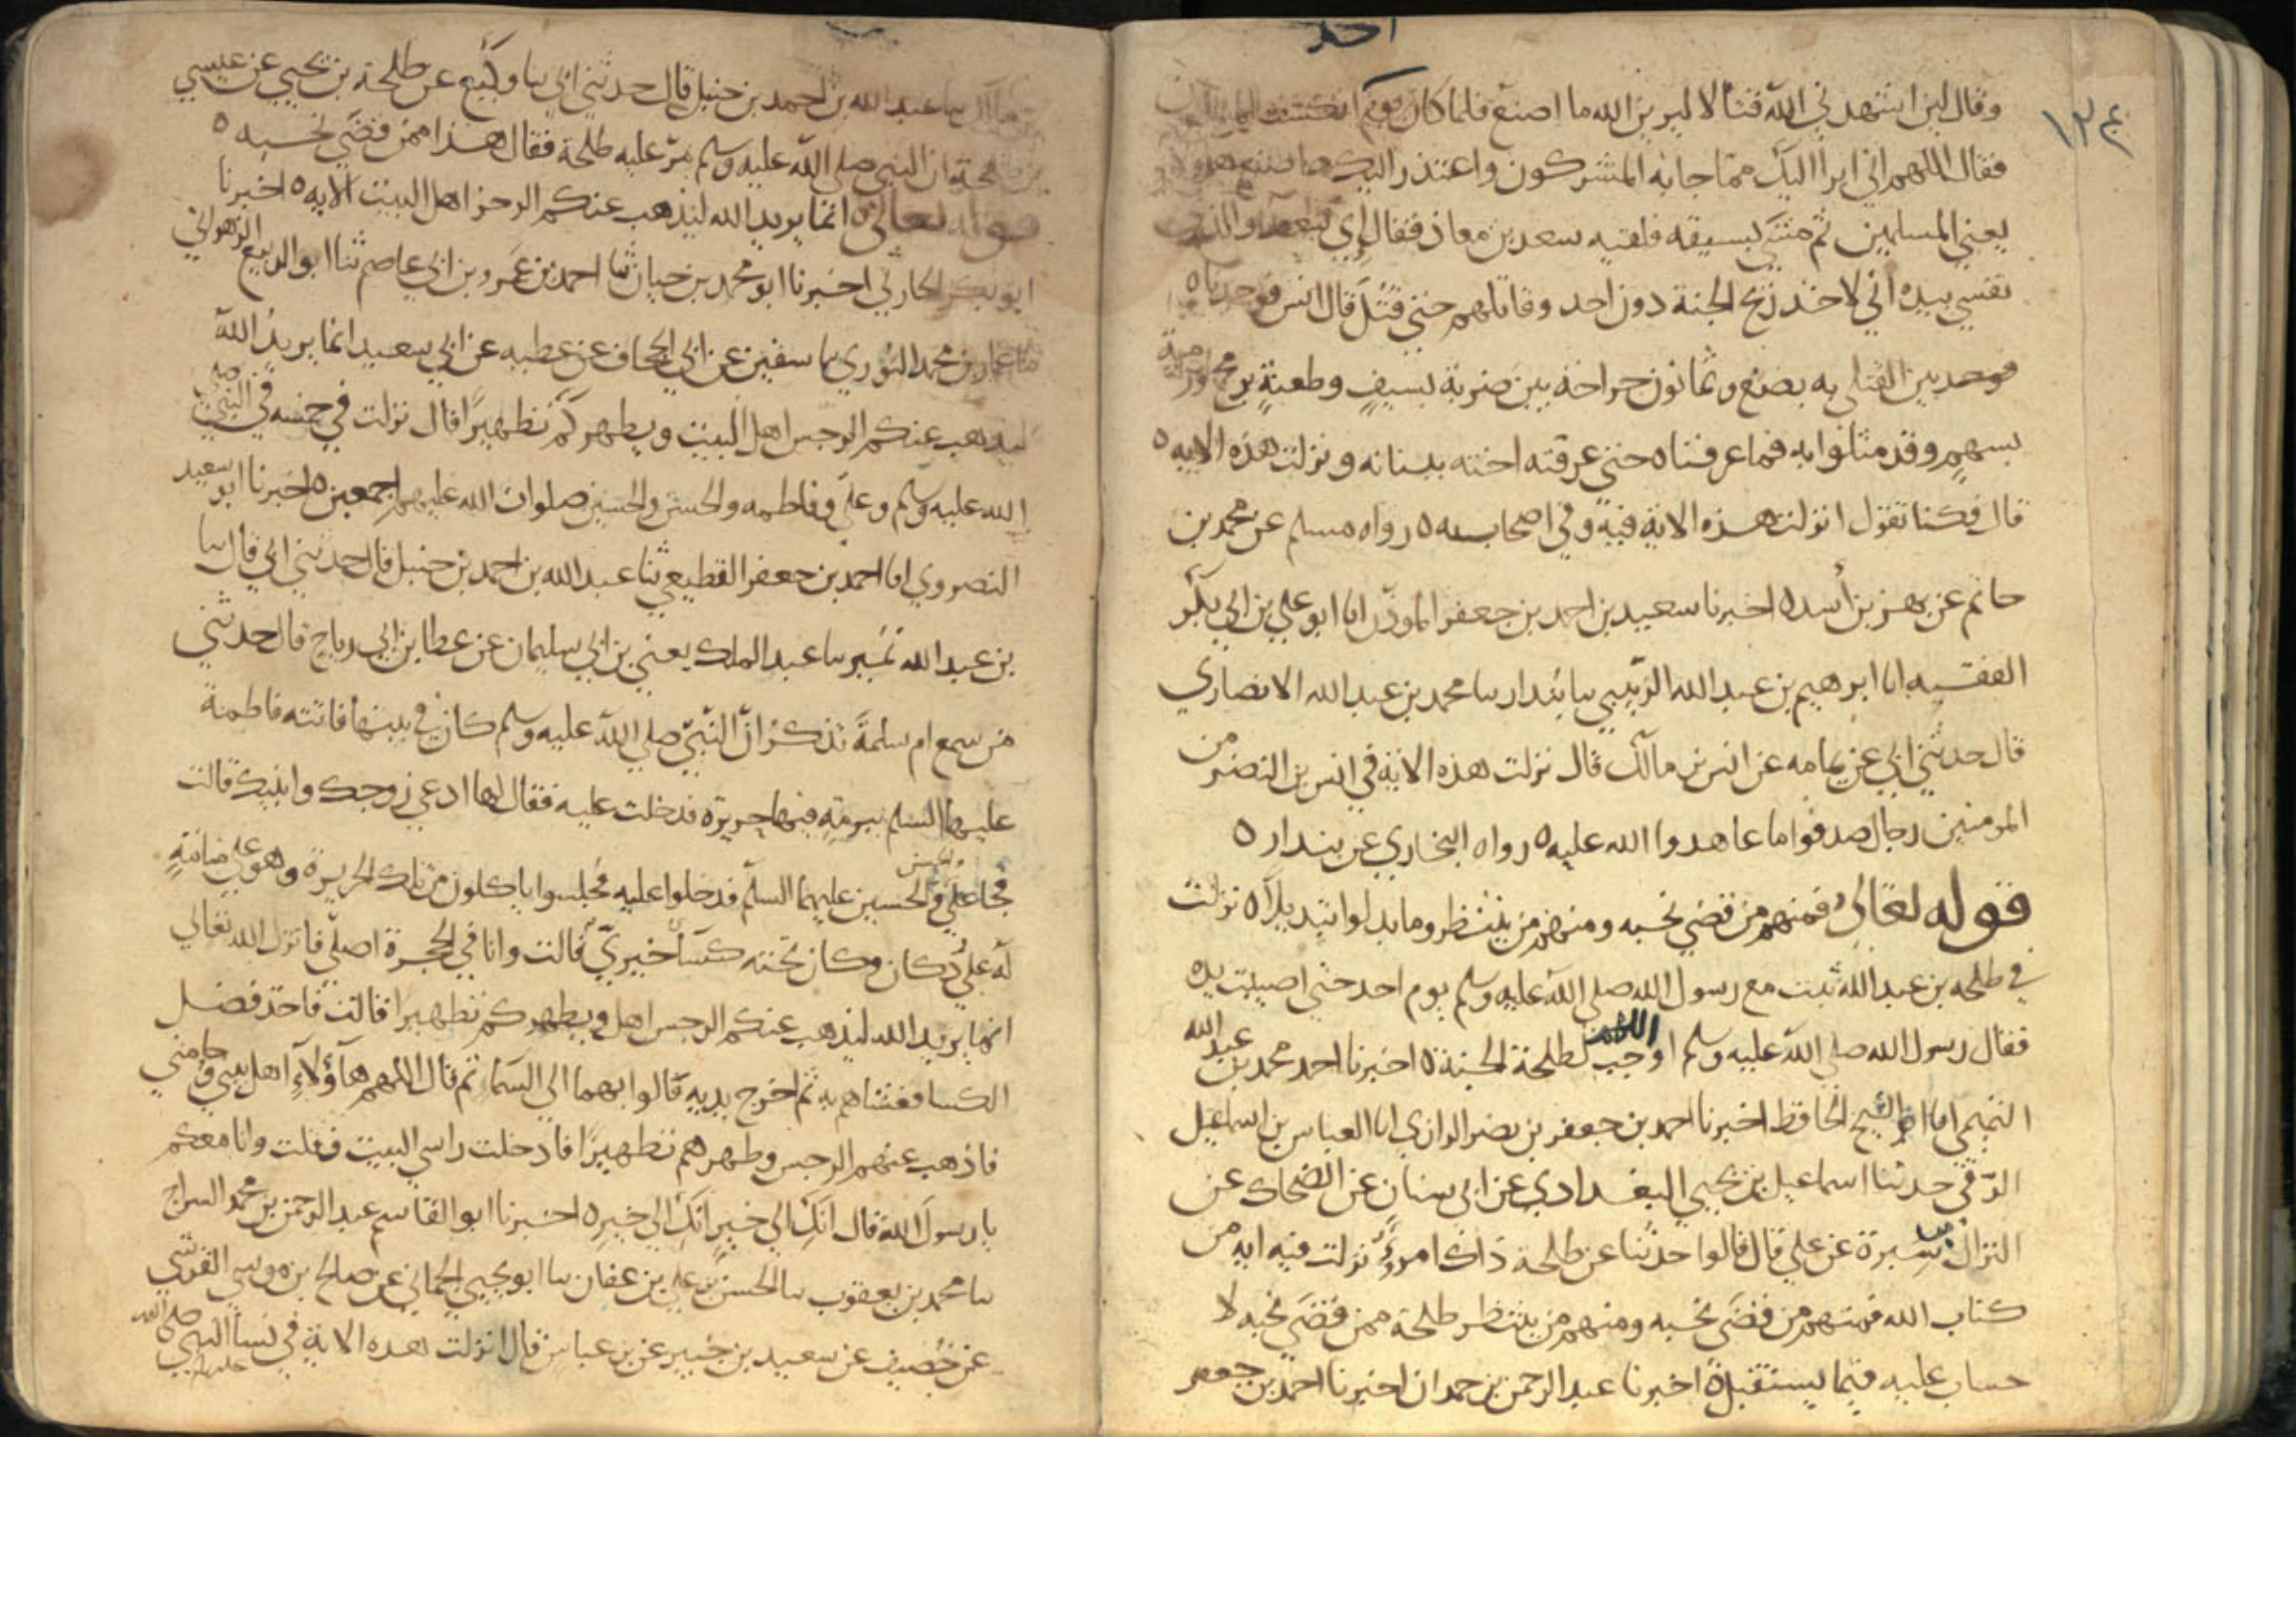 احد
١٢٤
وقال لين اشهدني الله قتالا ليرين الله ما اصنع فلما كان يوم انكشف
فقال اللهم اني ابرا اليك مما جا به المشركون واعتذر اليك مما صنع هولا
يعني المسلمين ثم مشى بسيفه فلقيه سعد بن معاذ فقال اي سعد والذي
نفسي بيده اني لاجد ريح الجنة دون احد وقاتلهم حتي قتل قال انس فوجدناه
بين القتلي به بضع وثمانون جراحة بين ضربة بسيف وطعنة برمح ورمية
بسهم وقد مثلوا به فما عرفناه حتي عرفته اخته ببنانه ونزلت هذه الايه ٥
قال فكنا نقول انزلت هذه الاية فيه وفي اصحابه ٥ رواه مسلم عن محمد بن
حاتم عن بهز بن أسد ٥ اخبرنا سعيد بن احمد بن جعفر الموذن انا ابو علي بن ابي بكر
الفقيه انا ابرهيم بن عبد الله الزبيبي سا بندار سا محمد بن عبد الله الانصاري
قال حدثني ابي عن ثمامه عن انس بن مالك قال نزلت هذه الاية في انس بن النضر من
المومنين رجال صدقوا ما عاهدوا الله عليه ٥ رواه البخاري عن بندار ٥
قوله تعالى فمنهم من قضي نحبه ومنهم من ينتظر وما بدلوا تبديلا ٥ نزلت
في طلحه بن عبد الله ثبت مع رسول الله صلي الله عليه وسلم يوم احد حتي اصيبت يده
فقال رسول الله صلي الله عليه وسلم اللهم اوجب لطلحة الجنة ٥ اخبرنا احمد محمد بن عبد الله
التميمي انا ابو الشيخ الحافظ اخبرنا احمد بن جعفر بن نصر الرازي انا العباس بن اسماعيل
الرقي حدثنا اسماعيل بن يحيي البغدادي عن ابي سنان عن الضحاك عن
النزال بن سبرة عن علي قال قالوا حدثنا عن طلحة ذاك امرؤ نزلت فيه ايه من
كتاب الله فمنهم من قضى نحبه ومنهم من ينتظر طلحة ممن قضى نحبه لا
حساب عليه فيما يستقبل ٥ اخبرنا عبد الرحمن بن حمدان اخبرنا احمد بن جعفر
سا عبد الله بن احمد بن حنبل قال حدثني ابي سا وكيع عن طلحة بن يحيي عن عيسي
بن طلحة ان النبي صلى الله عليه وسلم مر عليه طلحة فقال هذا ممن قضى نحبه ٥
قوله تعالى ٥ انما يريد الله ليذهب عنكم الرجز اهل البيت الايه ٥ اخبرنا
ابو بكر الحارثي اخبرنا ابو محمد بن حيان ثنا احمد بن عمرو بن ابي عاصم ثنا ابو الربيع الزهراني
ثنا عمار بن محمد الثوري سا سفين عن ابي الجحاف عن عطيه عن ابي سعيد انما يريد الله
ليذهب عنكم الرجس اهل البيت ويطهركم تطهيرا قال نزلت في خمسه في النبي صلى
الله عليه وسلم وعلي وفاطمه والحسن والحسين صلوات الله عليهم اجمعين ٥ اخبرنا ابو سعيد
النصروي انا احمد بن جعفر القطيعي ثنا عبد الله بن احمد بن حنبل قال حدثني ابي قال سا
بن عبد الله نمير سا عبد الملك يعني بن ابي سليمان عن عطا بن ابي رباح قال حدثني
من سمع ام سلمة تذكر ان النبي صلي الله عليه وسلم كان في بيتها فاتته فاطمة
عليها السلم ببرمة فيها حريرة فدخلت عليه فقال لها ادعي زوجك وابنيك قالت
فجا علي والحسن والحسين عليهما السلم فدخلوا عليه فجلسوا ياكلون من تلك الحريرة وهو علي منامة
له علي دكان وكان تحته كسا خيبري قالت وانا في الحجرة اصلي فانزل الله تعالي
انما يريد الله ليذهب عنكم الرجس اهل ويطهركم تطهيرا قالت فاخذ فضل
الكسا فغشاهم به ثم اخرج يديه فالوا بهما الى السما ثم قال اللهم هاؤلاء اهل بيتي وحامتي
فاذهب عنهم الرجس وطهرهم تطهيرا فادخلت راسي البيت فقلت وانا معكم
يا رسول الله قال انك الي خير انك الي خير ٥ اخبرنا ابو القاسم عبد الرحمن بن محمد السراج
سا محمد بن يعقوب سا الحسن بن علي بن عفان سا ابو يحيي الحماني عن صالح بن موسي القرشي
عن خصيف عن سعيد بن جبير عن بن عباس قال انزلت هذه الاية في نسا النبي صلى الله عليه